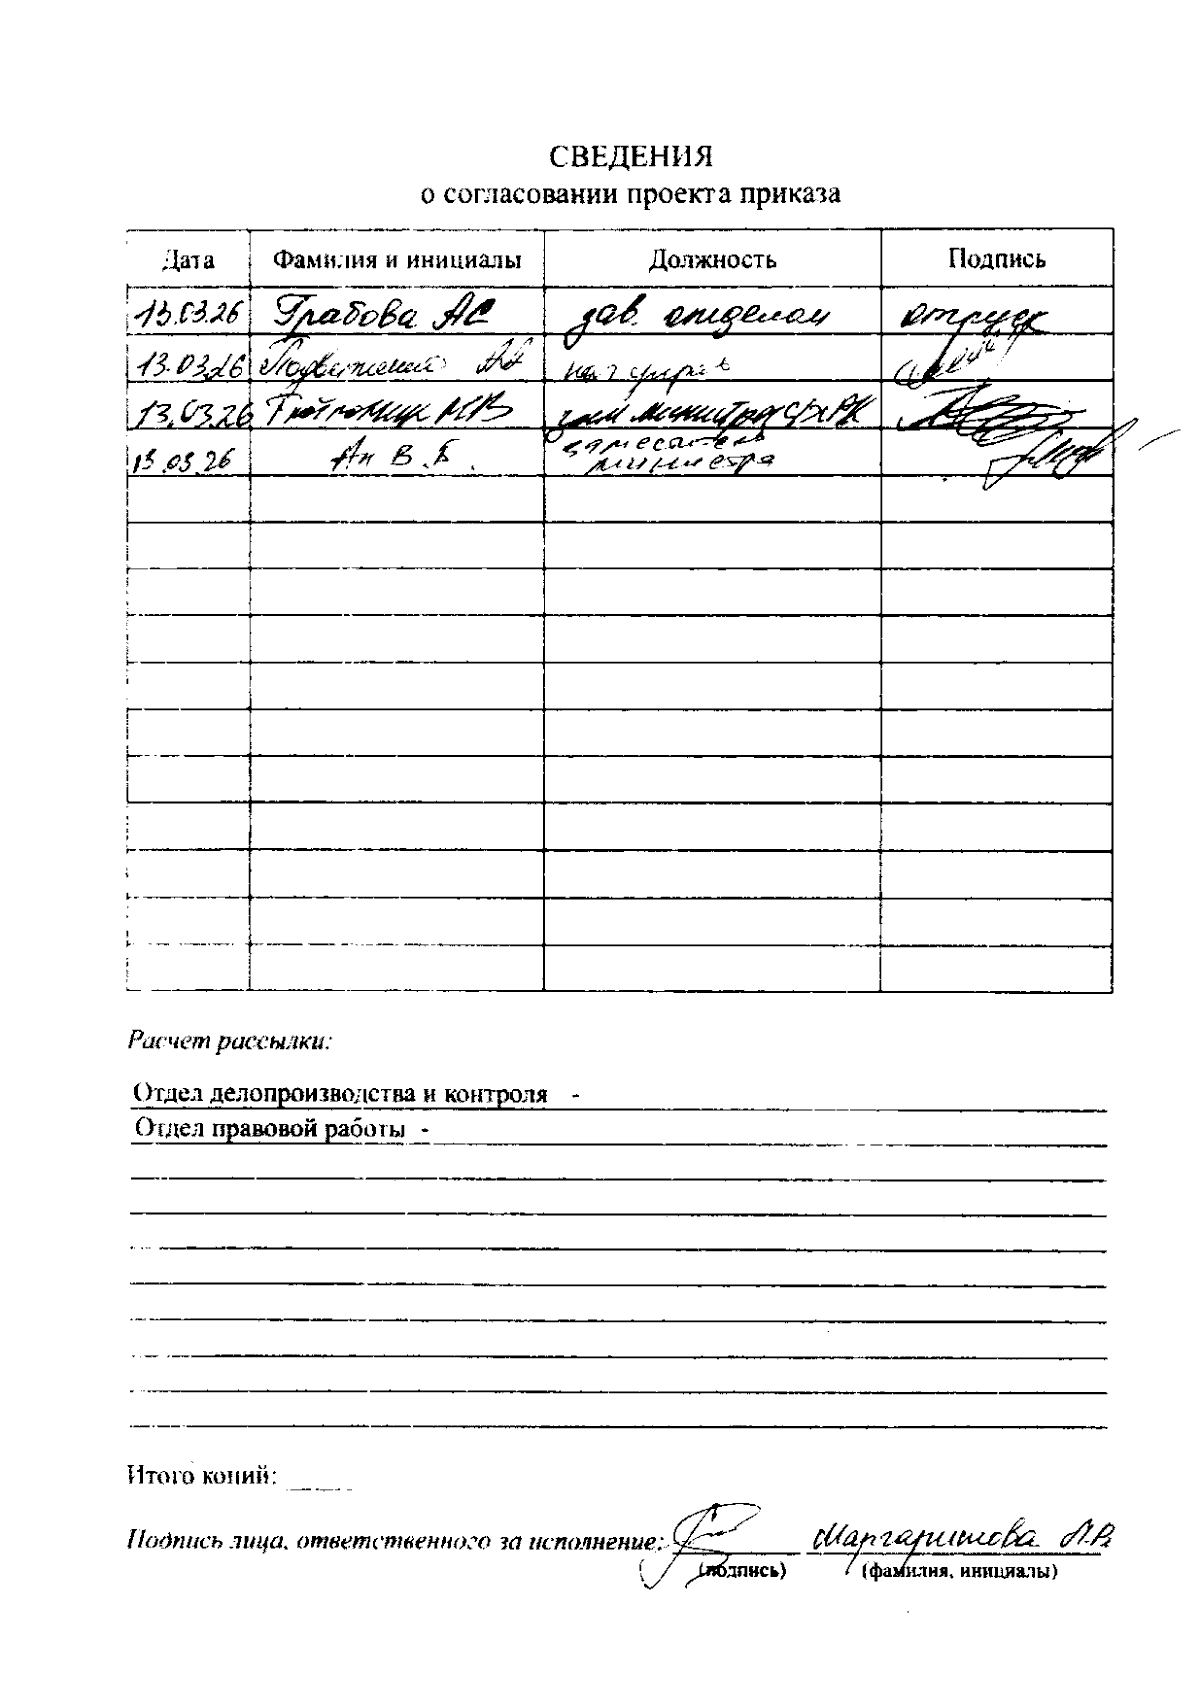 СВЕДЕНИЯ
о согласовании проекта приказа
Дата Фамилия и инициалы Должность Подпись
13.03.26 Грабова АС зав. отделом отпуск
13.03.26
13.03.26 МВ зам министра
13.03.26 Ан В.Б. заместитель министра
Расчет рассылки:
Отдел делопроизводства и контроля -
Отдел правовой работы -
Итого копий:
Подпись лица, ответственного за исполнение: Маргаритова Л.В.
(подпись) (фамилия, инициалы)